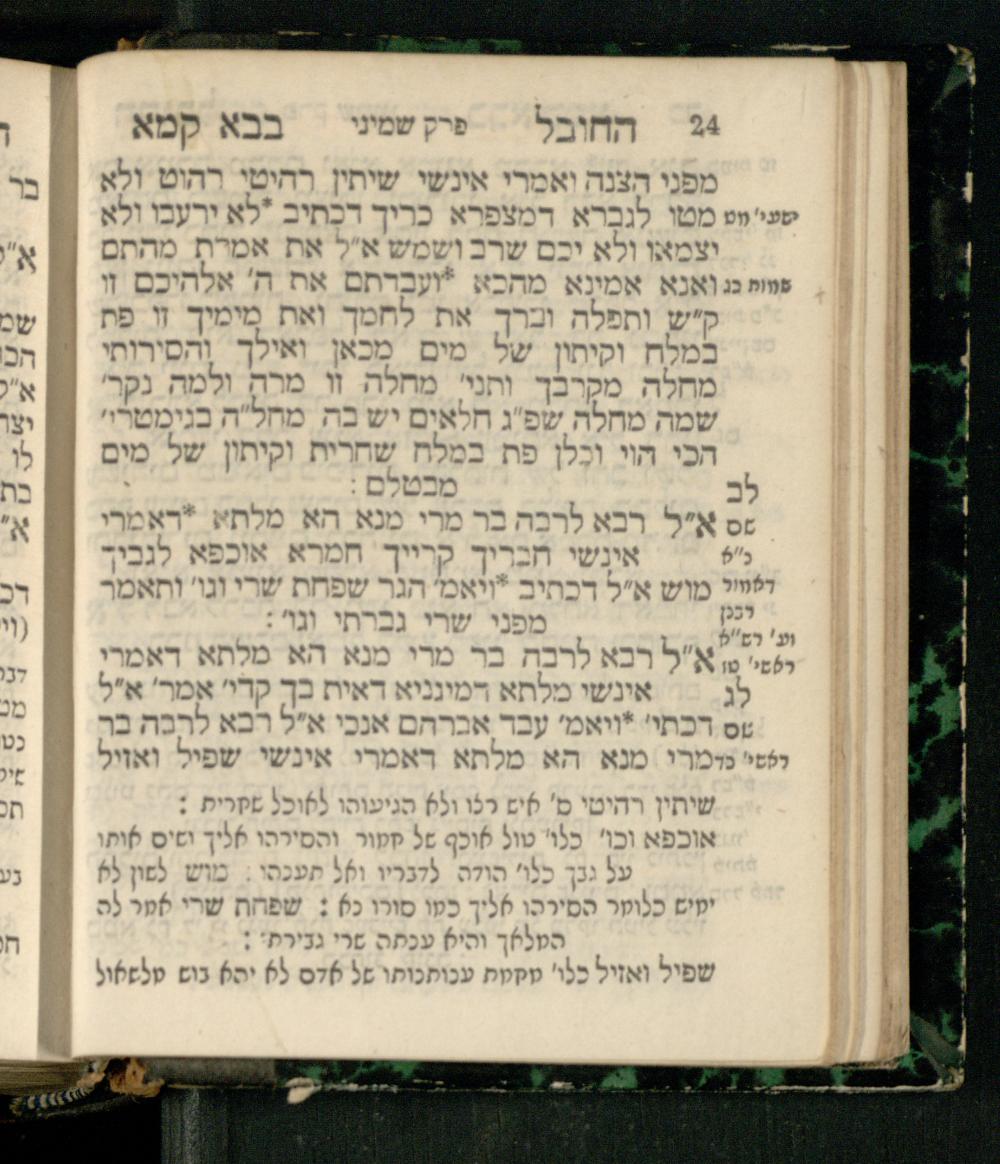 24 החובל פרק שמיני בבא קמא
מפני הצנה ואמרי אינשי שיתין רהיטי רהוט ולא
ישעי' מט מטו לגברא דמצפרא כריך דכתיב *לא ירעבו ולא
יצמאו ולא יכם שרב ושמש א״ל את אמרת מהתם
שמות כג ואנא אמינא מהכא *ועבדתם את ה' אלהיכם זו
ק״ש ותפלה וברך את לחמך ואת מימיך זו פת
במלח וקיתון של מים מכאן ואילך והסירותי
מחלה מקרבך ותני' מחלה זו מרה ולמה נקר'
שמה מחלה שפ״ג חלאים יש בה מחל״ה בגימטרי'
הכי הוי וכלן פת במלח שחרית וקיתון של מים
מבטלם :
לב
שם א״ל רבא לרבה בר מרי מנא הא מלתא *דאמרי
נ״א אינשי חבריך קרייך חמרא אוכפא לגביך
דאמור מוש א״ל דכתיב *ויאמ' הגר שפחת שרי וגו' ותאמר
רבנן מפני שרי גברתי וגו' :
וע' רש״א
ראשי' טז א״ל רבא לרבה בר מרי מנא הא מלתא דאמרי
לג אינשי מלתא דמינניא דאית בך קדי' אמר' א״ל
שם דכתי' *ויאמ' עבד אברהם אנכי א״ל רבא לרבה בר
ראשי' כד מרי מנא הא מלתא דאמרי אינשי שפיל ואזיל
שיתין רהיטי ס' איש רלו ולא הגיעוהו לאוכל שחרית :
אוכפא וכו' כלו' טול אוכף של חמור והסירהו אליך ושים אותו
על גבך כלו' הודה לדבריו ואל תענהו . מוש לשון לא
ימיש כלומר הסירהו אליך כמו סורו נא : שפחת שרי אמר לה
המלאך והיא ענתה שרי גבירתי :
שפיל ואזיל כלו' מחמת ענותנותו של אדם לא יהא בוש מלשאול